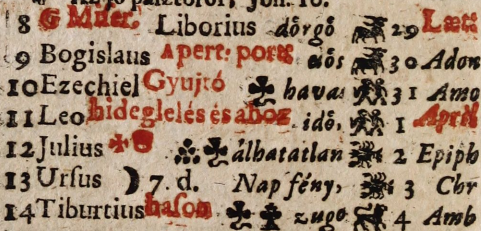 8 G Liborius dörgő 29 Læt
9 Bogislaus Apert: port: eös 30 Adon
10 Ezechiel Gyujtó havas 31 Amo
11 Leo hideglelés és ahoz idő, 1 April
12 Julius álhatatlan 2 Epiph
13 Ursus 7. d. Nap fény, 3 Chr
14 Tiburtius hason zugo 4 Amb